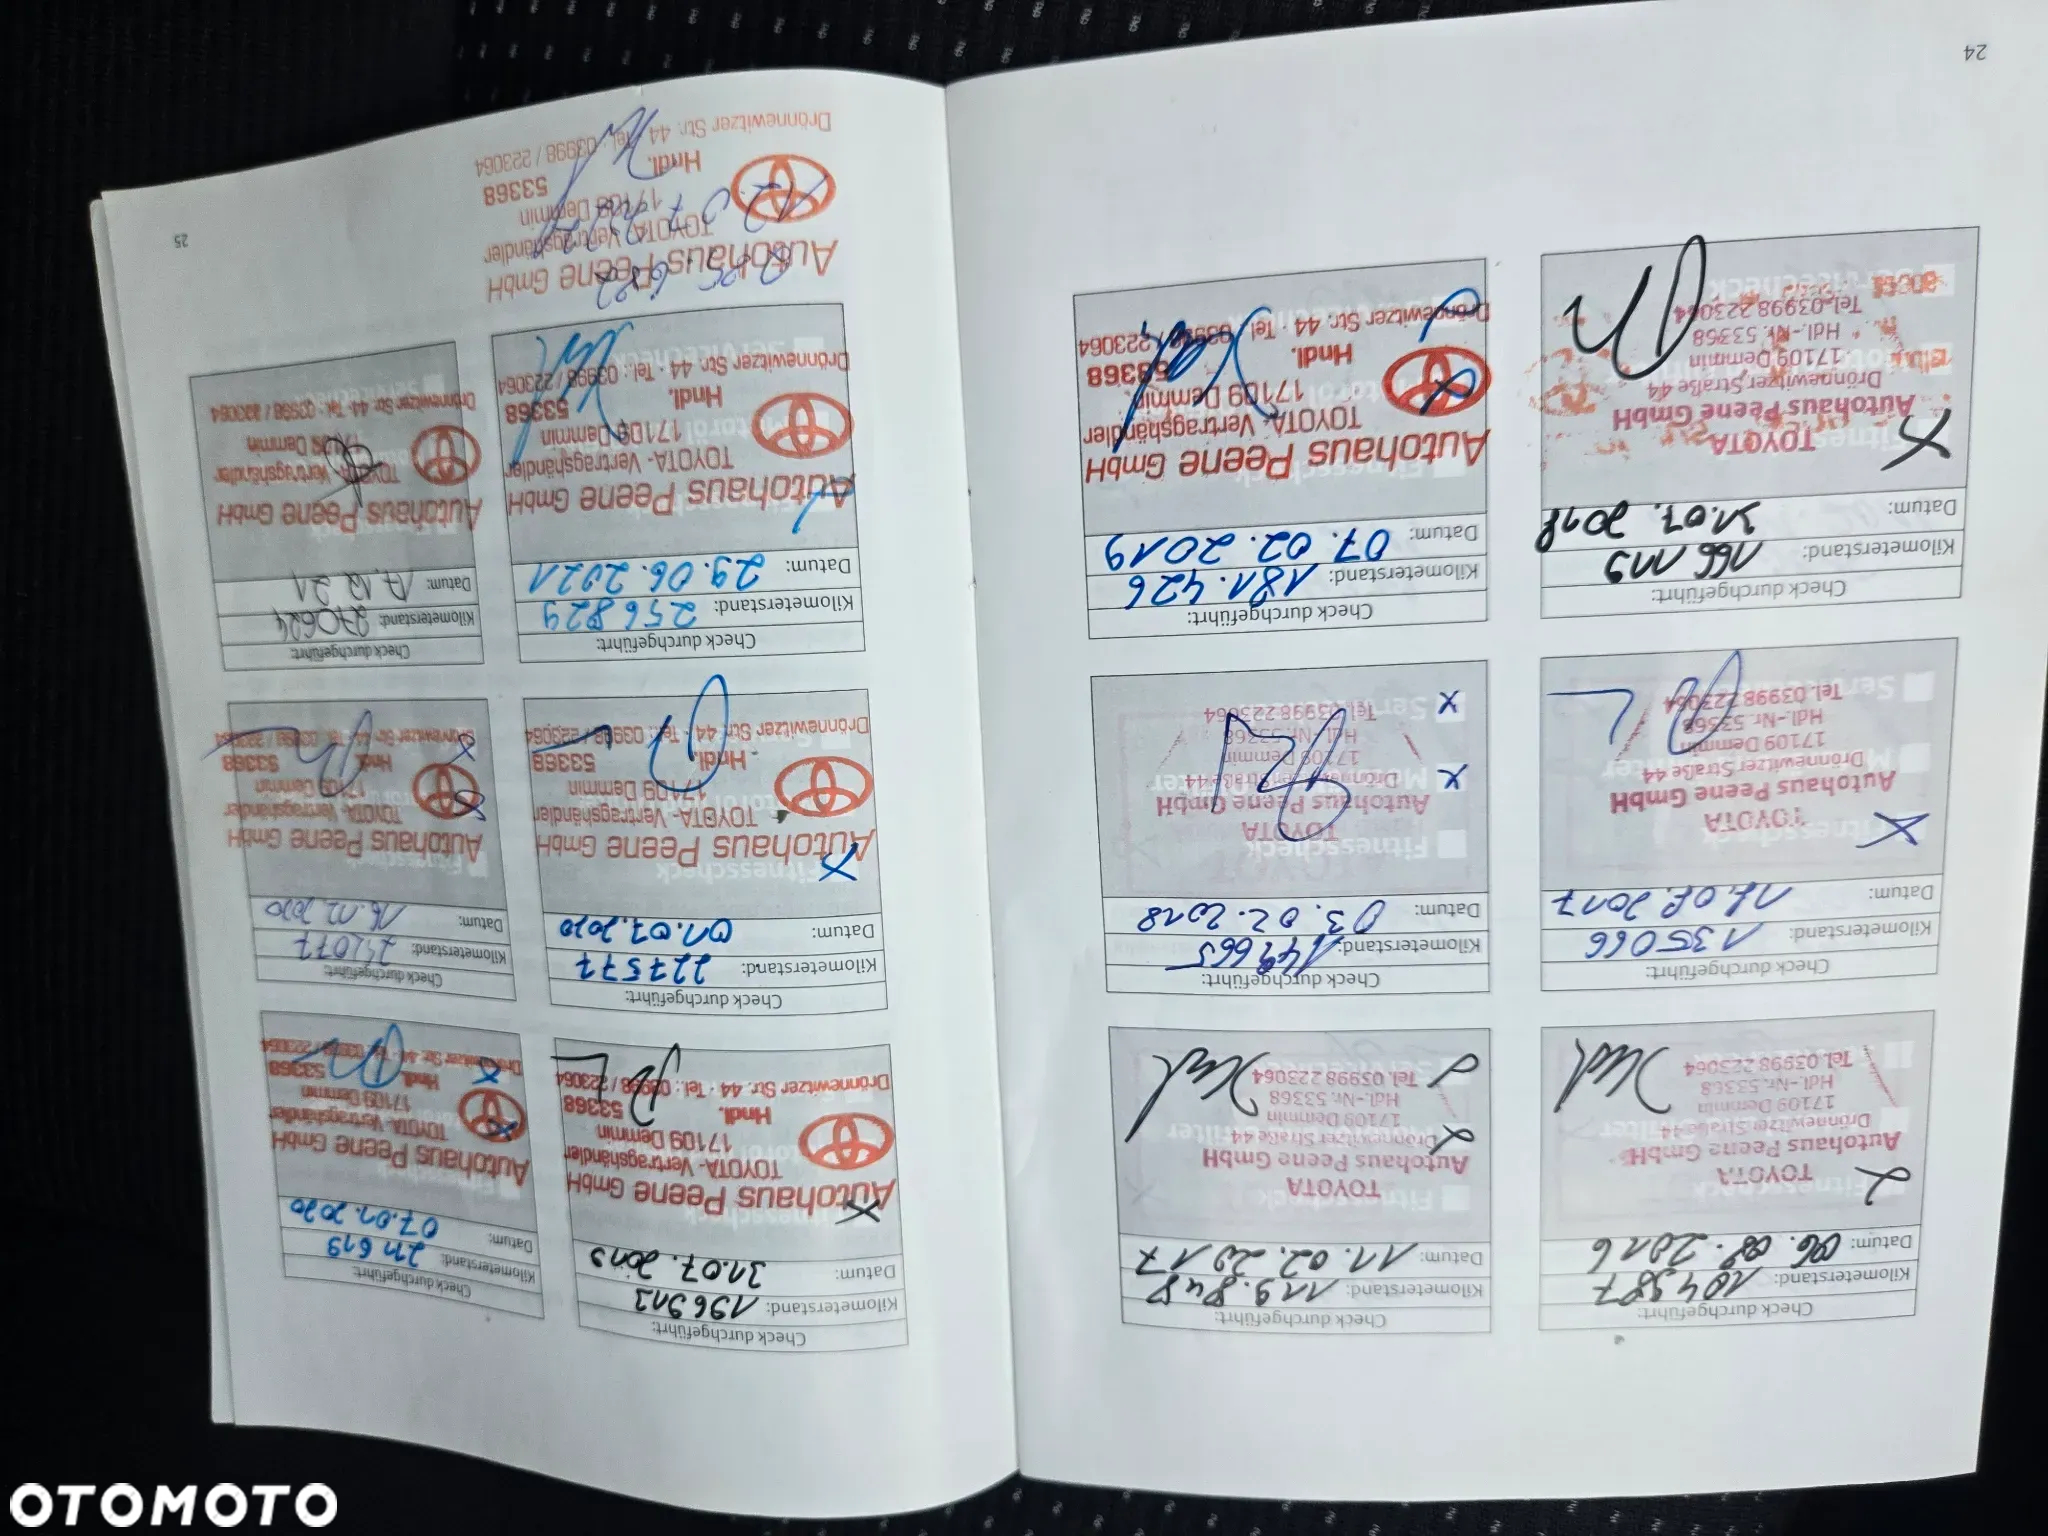 Check durchgeführt:
Kilometerstand: 104987
Datum: 06.08.2016
Fitnesscheck
TOYOTA
Autohaus Peene GmbH
Drönnewitzer Straße 44
17109 Demmin
Hdl.-Nr. 53368
Tel. 03998 223064
Check durchgeführt:
Kilometerstand: 119.848
Datum: 11.02.2017
Fitnesscheck
TOYOTA
Autohaus Peene GmbH
Drönnewitzer Straße 44
17109 Demmin
Hdl.-Nr. 53368
Tel. 03998 223064
Check durchgeführt:
Kilometerstand: 135066
Datum: 17.08.2017
Fitnesscheck
TOYOTA
Autohaus Peene GmbH
Drönnewitzer Straße 44
17109 Demmin
Hdl.-Nr. 53368
Tel. 03998 223064
Check durchgeführt:
Kilometerstand: 149665
Datum: 03.02.2018
Fitnesscheck
TOYOTA
Autohaus Peene GmbH
Drönnewitzer Straße 44
17109 Demmin
Hdl.-Nr. 53368
Tel. 03998 223064
Check durchgeführt:
Kilometerstand: 166113
Datum: 31.07.2018
TOYOTA
Autohaus Peene GmbH
Drönnewitzer Straße 44
17109 Demmin
Hdl.-Nr. 53368
Tel. 03998 223064
Check durchgeführt:
Kilometerstand: 181.426
Datum: 07.02.2019
Autohaus Peene GmbH
TOYOTA-Vertragshändler
17109 Demmin 53368
Hndl.
Drönnewitzer Str. 44 · Tel.: 03998 / 223064
24
Check durchgeführt:
Kilometerstand: 196913
Datum: 31.07.2019
Autohaus Peene GmbH
TOYOTA-Vertragshändler
17109 Demmin 53368
Hndl.
Drönnewitzer Str. 44 · Tel.: 03998 / 223064
Check durchgeführt:
Kilometerstand: 211619
Datum: 07.01.2020
Autohaus Peene GmbH
TOYOTA-Vertragshändler
17109 Demmin 53368
Hndl.
Drönnewitzer Str. 44 · Tel.: 03998 / 223064
Check durchgeführt:
Kilometerstand: 227577
Datum: 01.07.2020
Fitnesscheck
Autohaus Peene GmbH
TOYOTA-Vertragshändler
17109 Demmin 53368
Hndl.
Drönnewitzer Str. 44 · Tel.: 03998 / 223064
Check durchgeführt:
Kilometerstand: 242077
Datum: 16.12.2020
Fitnesscheck
Autohaus Peene GmbH
TOYOTA-Vertragshändler
17109 Demmin 53368
Hndl.
Drönnewitzer Str. 44 · Tel.: 03998 / 223064
Check durchgeführt:
Kilometerstand: 256829
Datum: 29.06.2021
Autohaus Peene GmbH
TOYOTA-Vertragshändler
17109 Demmin 53368
Hndl.
Drönnewitzer Str. 44 · Tel.: 03998 / 223064
Check durchgeführt:
Kilometerstand: 270624
Datum: 17.12.21
Autohaus Peene GmbH
TOYOTA-Vertragshändler
17109 Demmin
Drönnewitzer Str. 44 · Tel.: 03998 / 223064
Autohaus Peene GmbH
TOYOTA-Vertragshändler
17109 Demmin 53368
Hndl.
Drönnewitzer Str. 44 · Tel.: 03998 / 223064
25
OTOMOTO